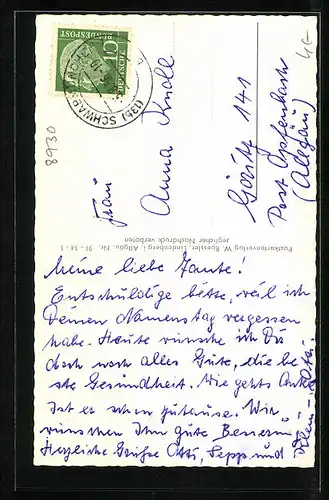 4€
8930
10
DEUTSCHE
BUNDESPOST
(13b) SCHWABMÜNCHEN
Frau
Anna Knoll
141
Post Opfenbach
(Allgäu)
Postkartenverlag W. Kessler, Lindenberg i. Allgäu, Nr. 91 - 14 - 1
Jeglicher Nachdruck verboten
Meine liebe Tante!
Entschuldige bitte, weil ich
Deinen Namenstag vergessen
habe. Heute wünsche ich Dir
doch noch alles Gute, die be-
ste Gesundheit. Wie gehts
Ist er schon zuhause. Wir
wünschen Ihm gute Besserung
Herzliche Grüße Otti, Sepp und